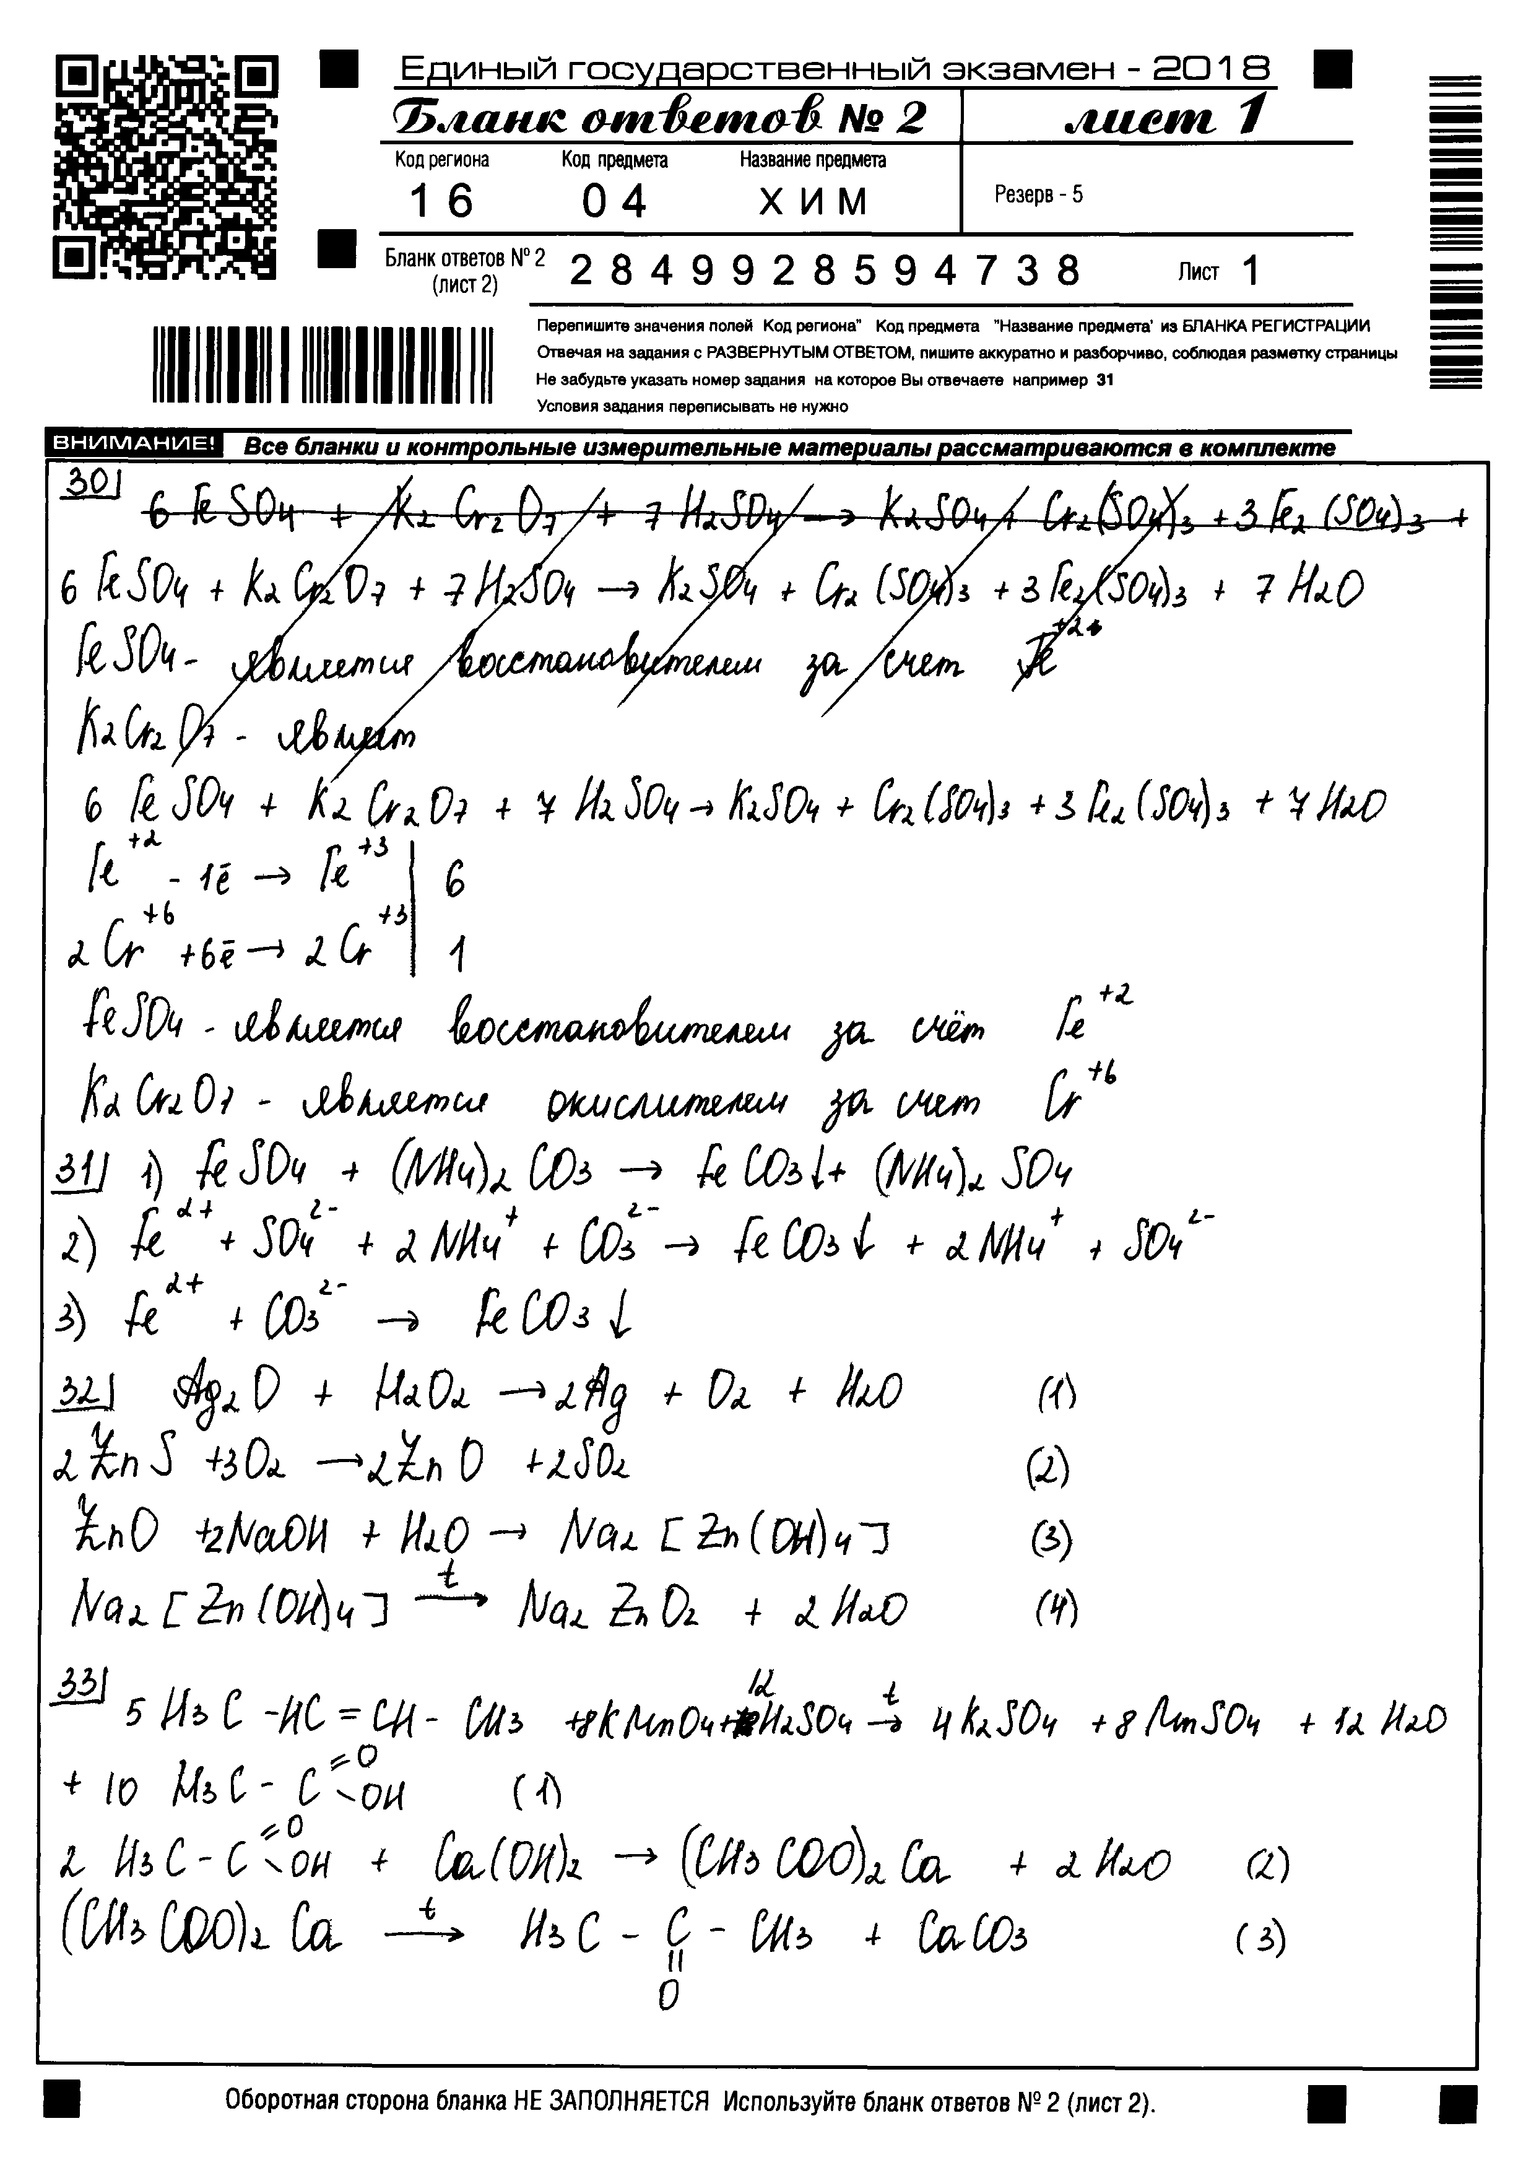 Единый государственный экзамен - 2018
Бланк ответов № 2 лист 1
Код региона Код предмета Название предмета
16 04 ХИМ Резерв - 5
Бланк ответов № 2 (лист 2) 2849928594738 Лист 1
Перепишите значения полей Код региона" Код предмета "Название предмета' из БЛАНКА РЕГИСТРАЦИИ
Отвечая на задания с РАЗВЕРНУТЫМ ОТВЕТОМ, пишите аккуратно и разборчиво, соблюдая разметку страницы
Не забудьте указать номер задания на которое Вы отвечаете например 31
Условия задания переписывать не нужно
ВНИМАНИЕ! Все бланки и контрольные измерительные материалы рассматриваются в комплекте
30)
6 FeSO4 + K2Cr2O7 + 7 H2SO4 → K2SO4 + Cr2(SO4)3 + 3 Fe2(SO4)3 +
6 FeSO4 + K2Cr2O7 + 7 H2SO4 → K2SO4 + Cr2(SO4)3 + 3 Fe2(SO4)3 + 7 H2O
FeSO4 - является восстановителем за счет Fe+2
K2Cr2O7 - являет
6 FeSO4 + K2Cr2O7 + 7 H2SO4 → K2SO4 + Cr2(SO4)3 + 3 Fe2(SO4)3 + 7 H2O
Fe+2 - 1ē → Fe+3 | 6
2 Cr+6 + 6ē → 2 Cr+3 | 1
FeSO4 - является восстановителем за счёт Fe+2
K2Cr2O7 - является окислителем за счет Cr+6
31) 1) FeSO4 + (NH4)2CO3 → FeCO3↓ + (NH4)2SO4
2) Fe2+ + SO42- + 2NH4+ + CO32- → FeCO3↓ + 2NH4+ + SO42-
3) Fe2+ + CO32- → FeCO3↓
32) Ag2O + H2O2 → 2Ag + O2 + H2O (1)
2ZnS + 3O2 → 2ZnO + 2SO2 (2)
ZnO + 2NaOH + H2O → Na2[Zn(OH)4] (3)
Na2[Zn(OH)4] t→ Na2ZnO2 + 2H2O (4)
33)
5 H3C - HC = CH - CH3 + 8KMnO4 + 12H2SO4 t→ 4K2SO4 + 8MnSO4 + 12H2O
+ 10 H3C - C =O -OH (1)
2 H3C - C =O -OH + Ca(OH)2 → (CH3COO)2Ca + 2H2O (2)
(CH3COO)2Ca t→ H3C - C - CH3 + CaCO3 (3)
||
O
Оборотная сторона бланка НЕ ЗАПОЛНЯЕТСЯ Используйте бланк ответов № 2 (лист 2).